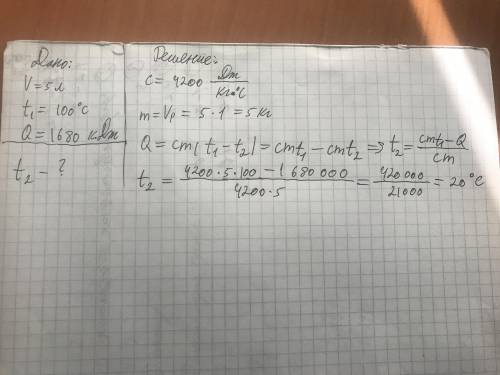 Дано:
V = 5 л
t₁ = 100°C
Q = 1680 кДж
t₂ - ?
Решение:
c = 4200 Дж/кг·°C
m = Vρ = 5 · 1 = 5 кг
Q = cm(t₁ - t₂) = cmt₁ - cmt₂ => t₂ = (cmt₁ - Q)/cm
t₂ = (4200 · 5 · 100 - 1 680 000)/(4200 · 5) = 420 000/21000 = 20°C